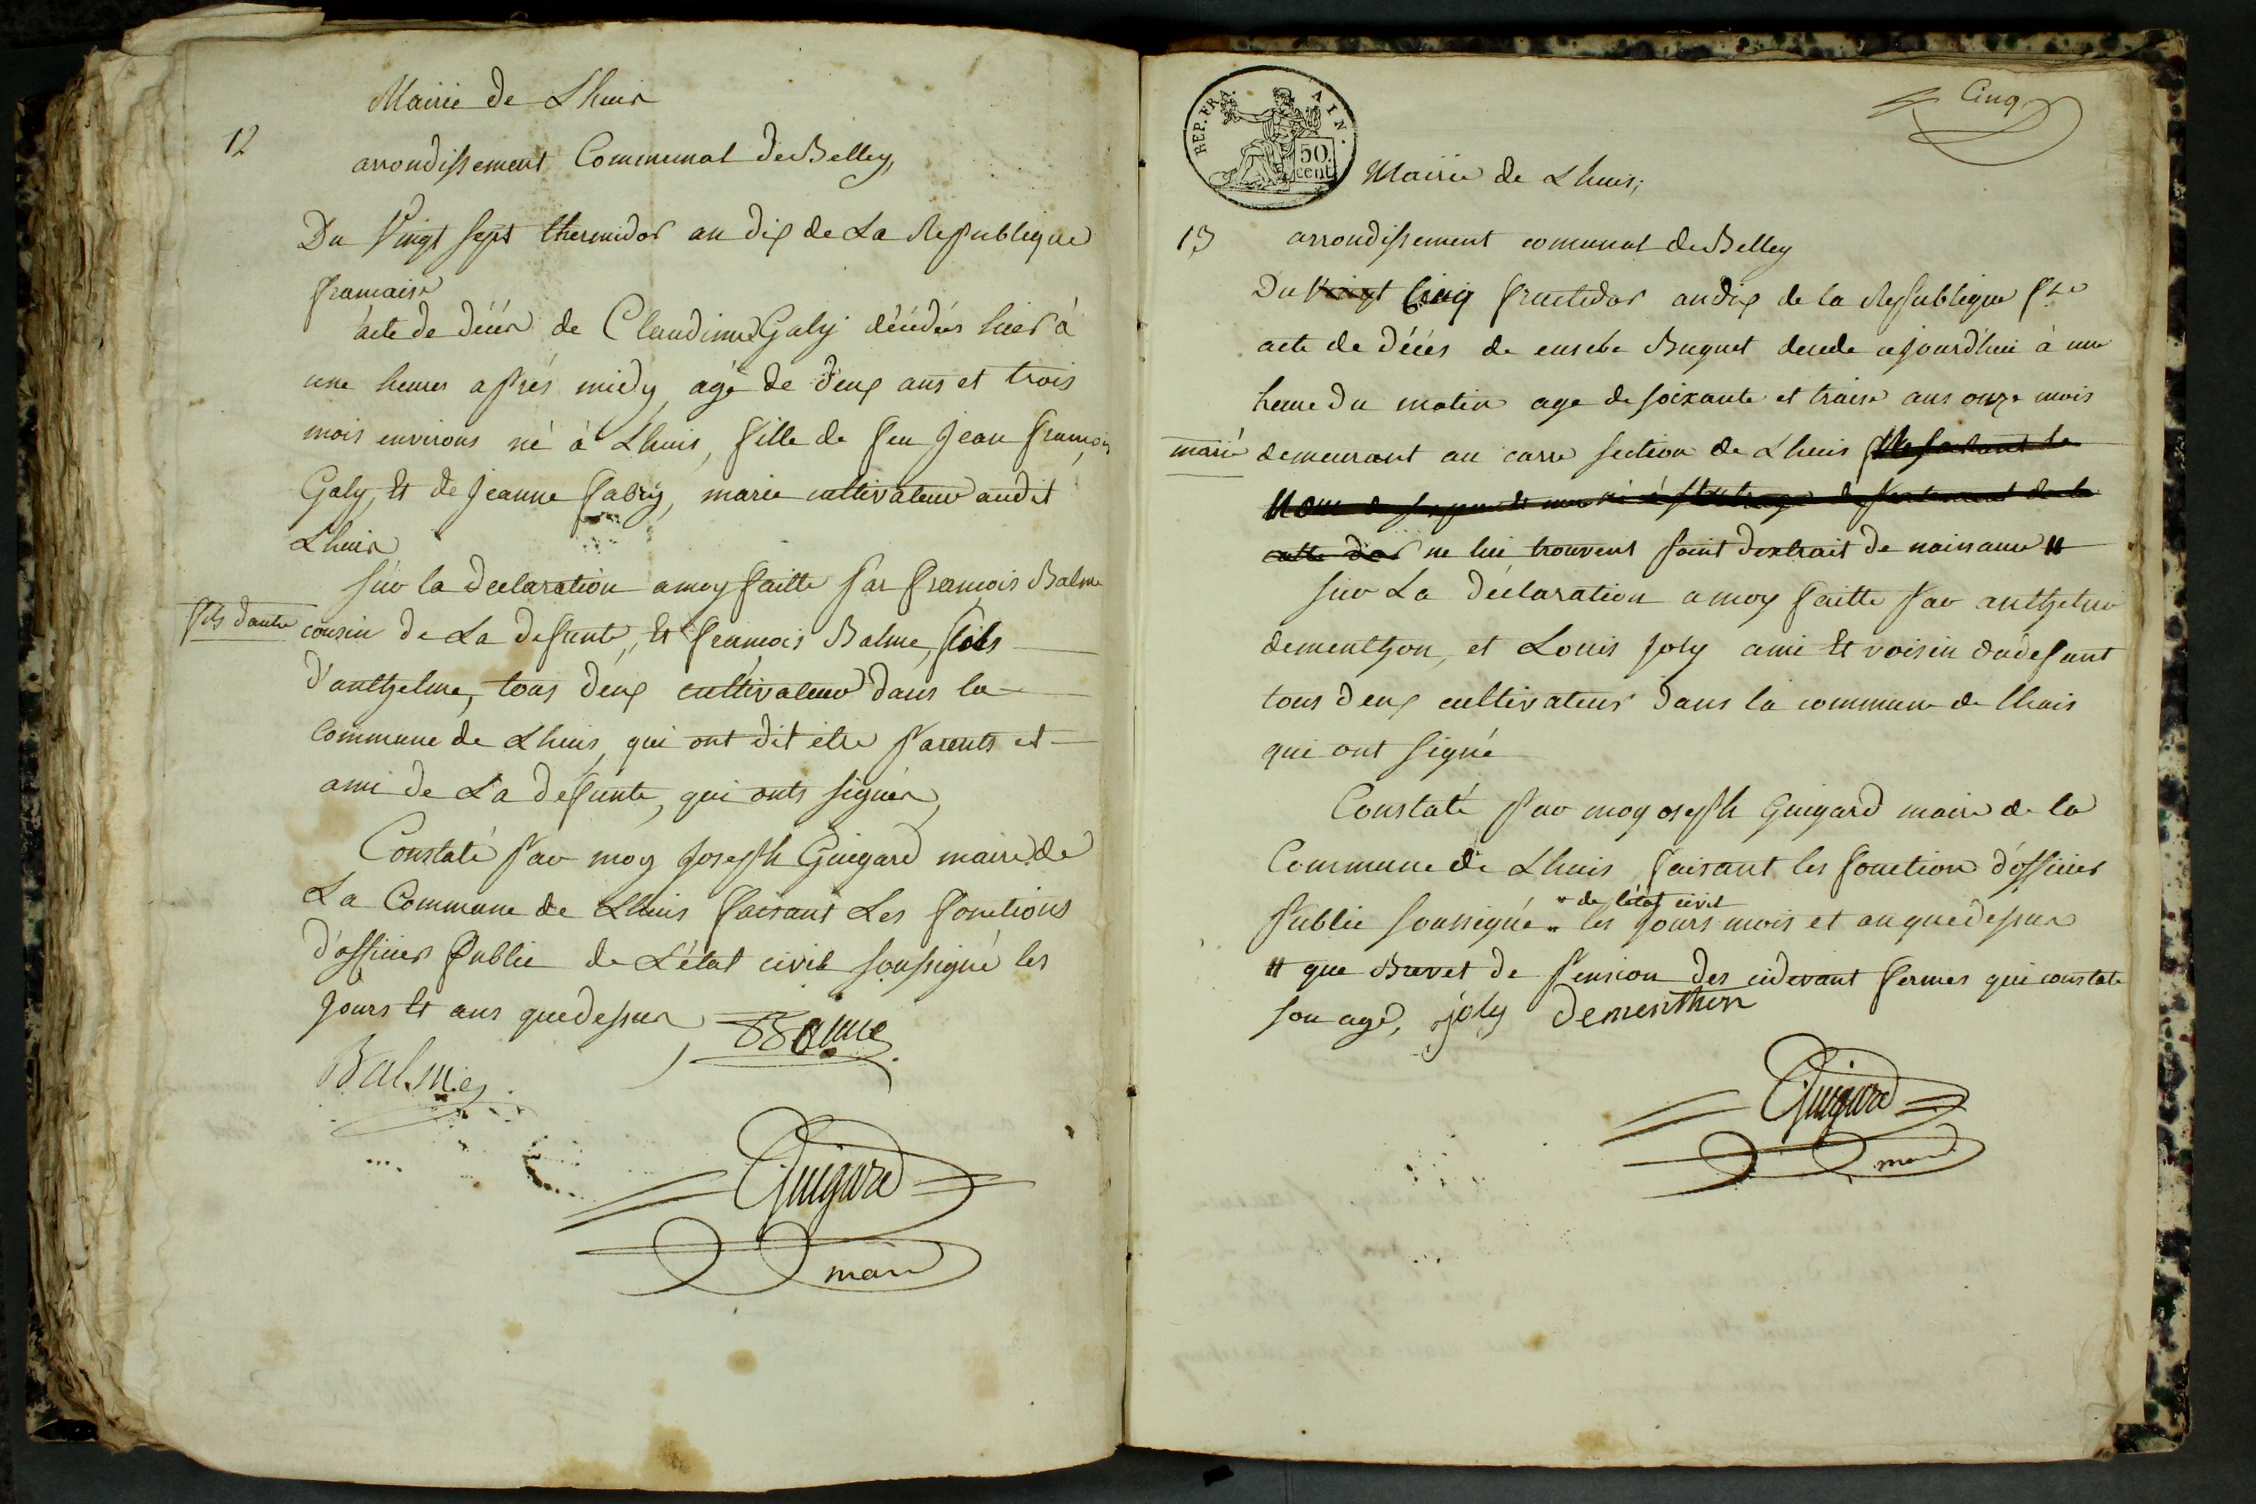 Mairie de Lhuis
12
arrondissement Communal de Belley,
Du Vingt sept thermidor an dix de La Republique
francaise
acte de décés de Claudine Galy décédés hier à
une heures aprés midy, agé de deux ans et trois
mois environs né à Lhuis, fille de feu Jean francois
Galy, Et de Jeanne fabry, marie cultivateur audit
Lhuis
sur la declaration a moy faitte par francois Balme
fils d'anthe
cousin de La defunte, Et francois Balme, fils
d'anthelme, tous deux cultivateur dans la
Commune de Lhuis, qui ont dit etre parents et
ami de La defunte, qui onts signés,
Constaté par moy Joseph Guigard maire de
La Commune de Lhuis faisant Les fonctions
d'officier Public de L'état civil soussigné les
jours Et ans que dessus
Balme
Balme
Guigard
maire
Cinq
REP. FRA. AIN.
50 cent
Mairie de Lhuis;
13
arrondissement comunal de Belley
Du vingt Cinq fructidor an dix de la Republique fse
acte de décés de eusebe Buguet decede cejourd'hui à une
heure du matin age de soixante et traise ans onze mois
marié
demeurant au carre section de Lhuis
ne lui trouvent point dextrait de naissance #
sur La déclaration a moy faitte par anthelme
dementhon, et Louis Joly ami Et voisin du defunt
tous deux cultivateur dans la commune de lhuis
qui ont signé
Constaté par moy oseph Guigard maire de la
Commune de Lhuis faisant les fonction d'officier
de l'état civil
Public soussigné les jours mois et an que dessus
# que Brevet de Pension des cidevant fermes qui constate
son age, joly Dementhon
Guigard
maire